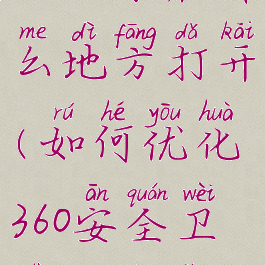 me dì fāng dǎ kāi
么地方打开
rú hé yōu huà
(如何优化
ān quán wèi
360安全卫